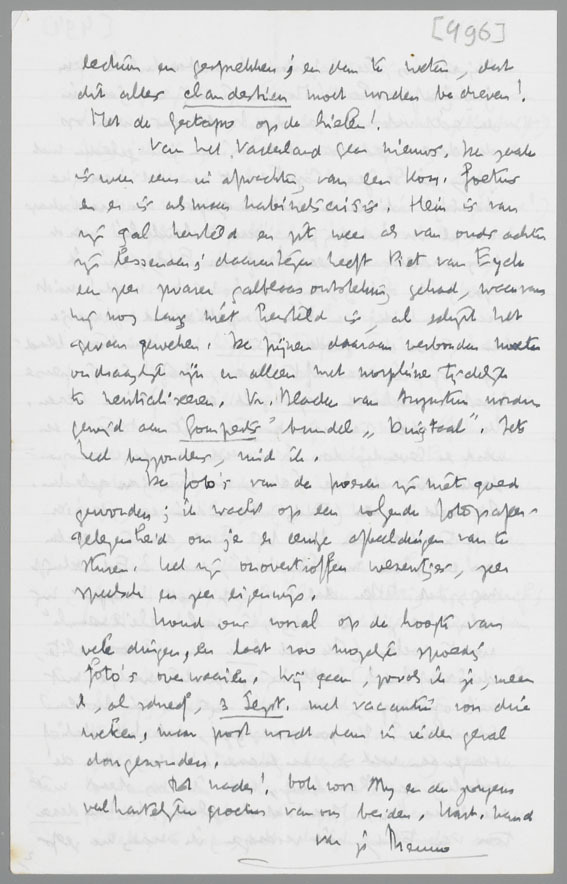 [496]
lectuur en gesprekken; en dan te weten, dat
dit alles clandestien moet worden bedreven!
Met de Gestapo op de hielen!
Van het Vaderland geen nieuws. De zaak
is weer eens in afwachting van een Kon.
en er is alweer kabinetscrisis. Hein is van
zijn gal hersteld en zit weer als van ouds achter
zijn lessenaar; daarentegen heeft Piet van Eyck
een zeer zware galblaasontsteking gehad, waarvan
hij nog lang niet hersteld is, al schijnt het
gevaar geweken. De pijnen daaraan verbonden moeten
ondraaglijk zijn en alleen met morphine tijdelijk
te neutraliseeren. Vr. Bladen van Augustus worden
gewijd aan Gomperts' bundel „Dingtaal". Iets
heel bijzonders, vind ik.
De foto's van de poezen zijn niet goed
geworden; ik wacht op een volgende fotografeer-
gelegenheid om je er eenige afbeeldingen van te
sturen. Het zijn onovertroffen wezentjes, zeer
speelsch en zeer eigenwijs.
Houd ons vooral op de hoogte van
vele dingen, en laat zoo mogelijk spoedig
foto's overwaaien. Wij gaan, zooals ik je, meen
ik, al schreef, 3 Sept. met vacantie voor drie
weken, maar post wordt dan in ieder geval
doorgezonden.
Tot nader! Ook voor Any en de jongens
veel hartelijke groeten van ons beiden. Hart. hand
van je Menno